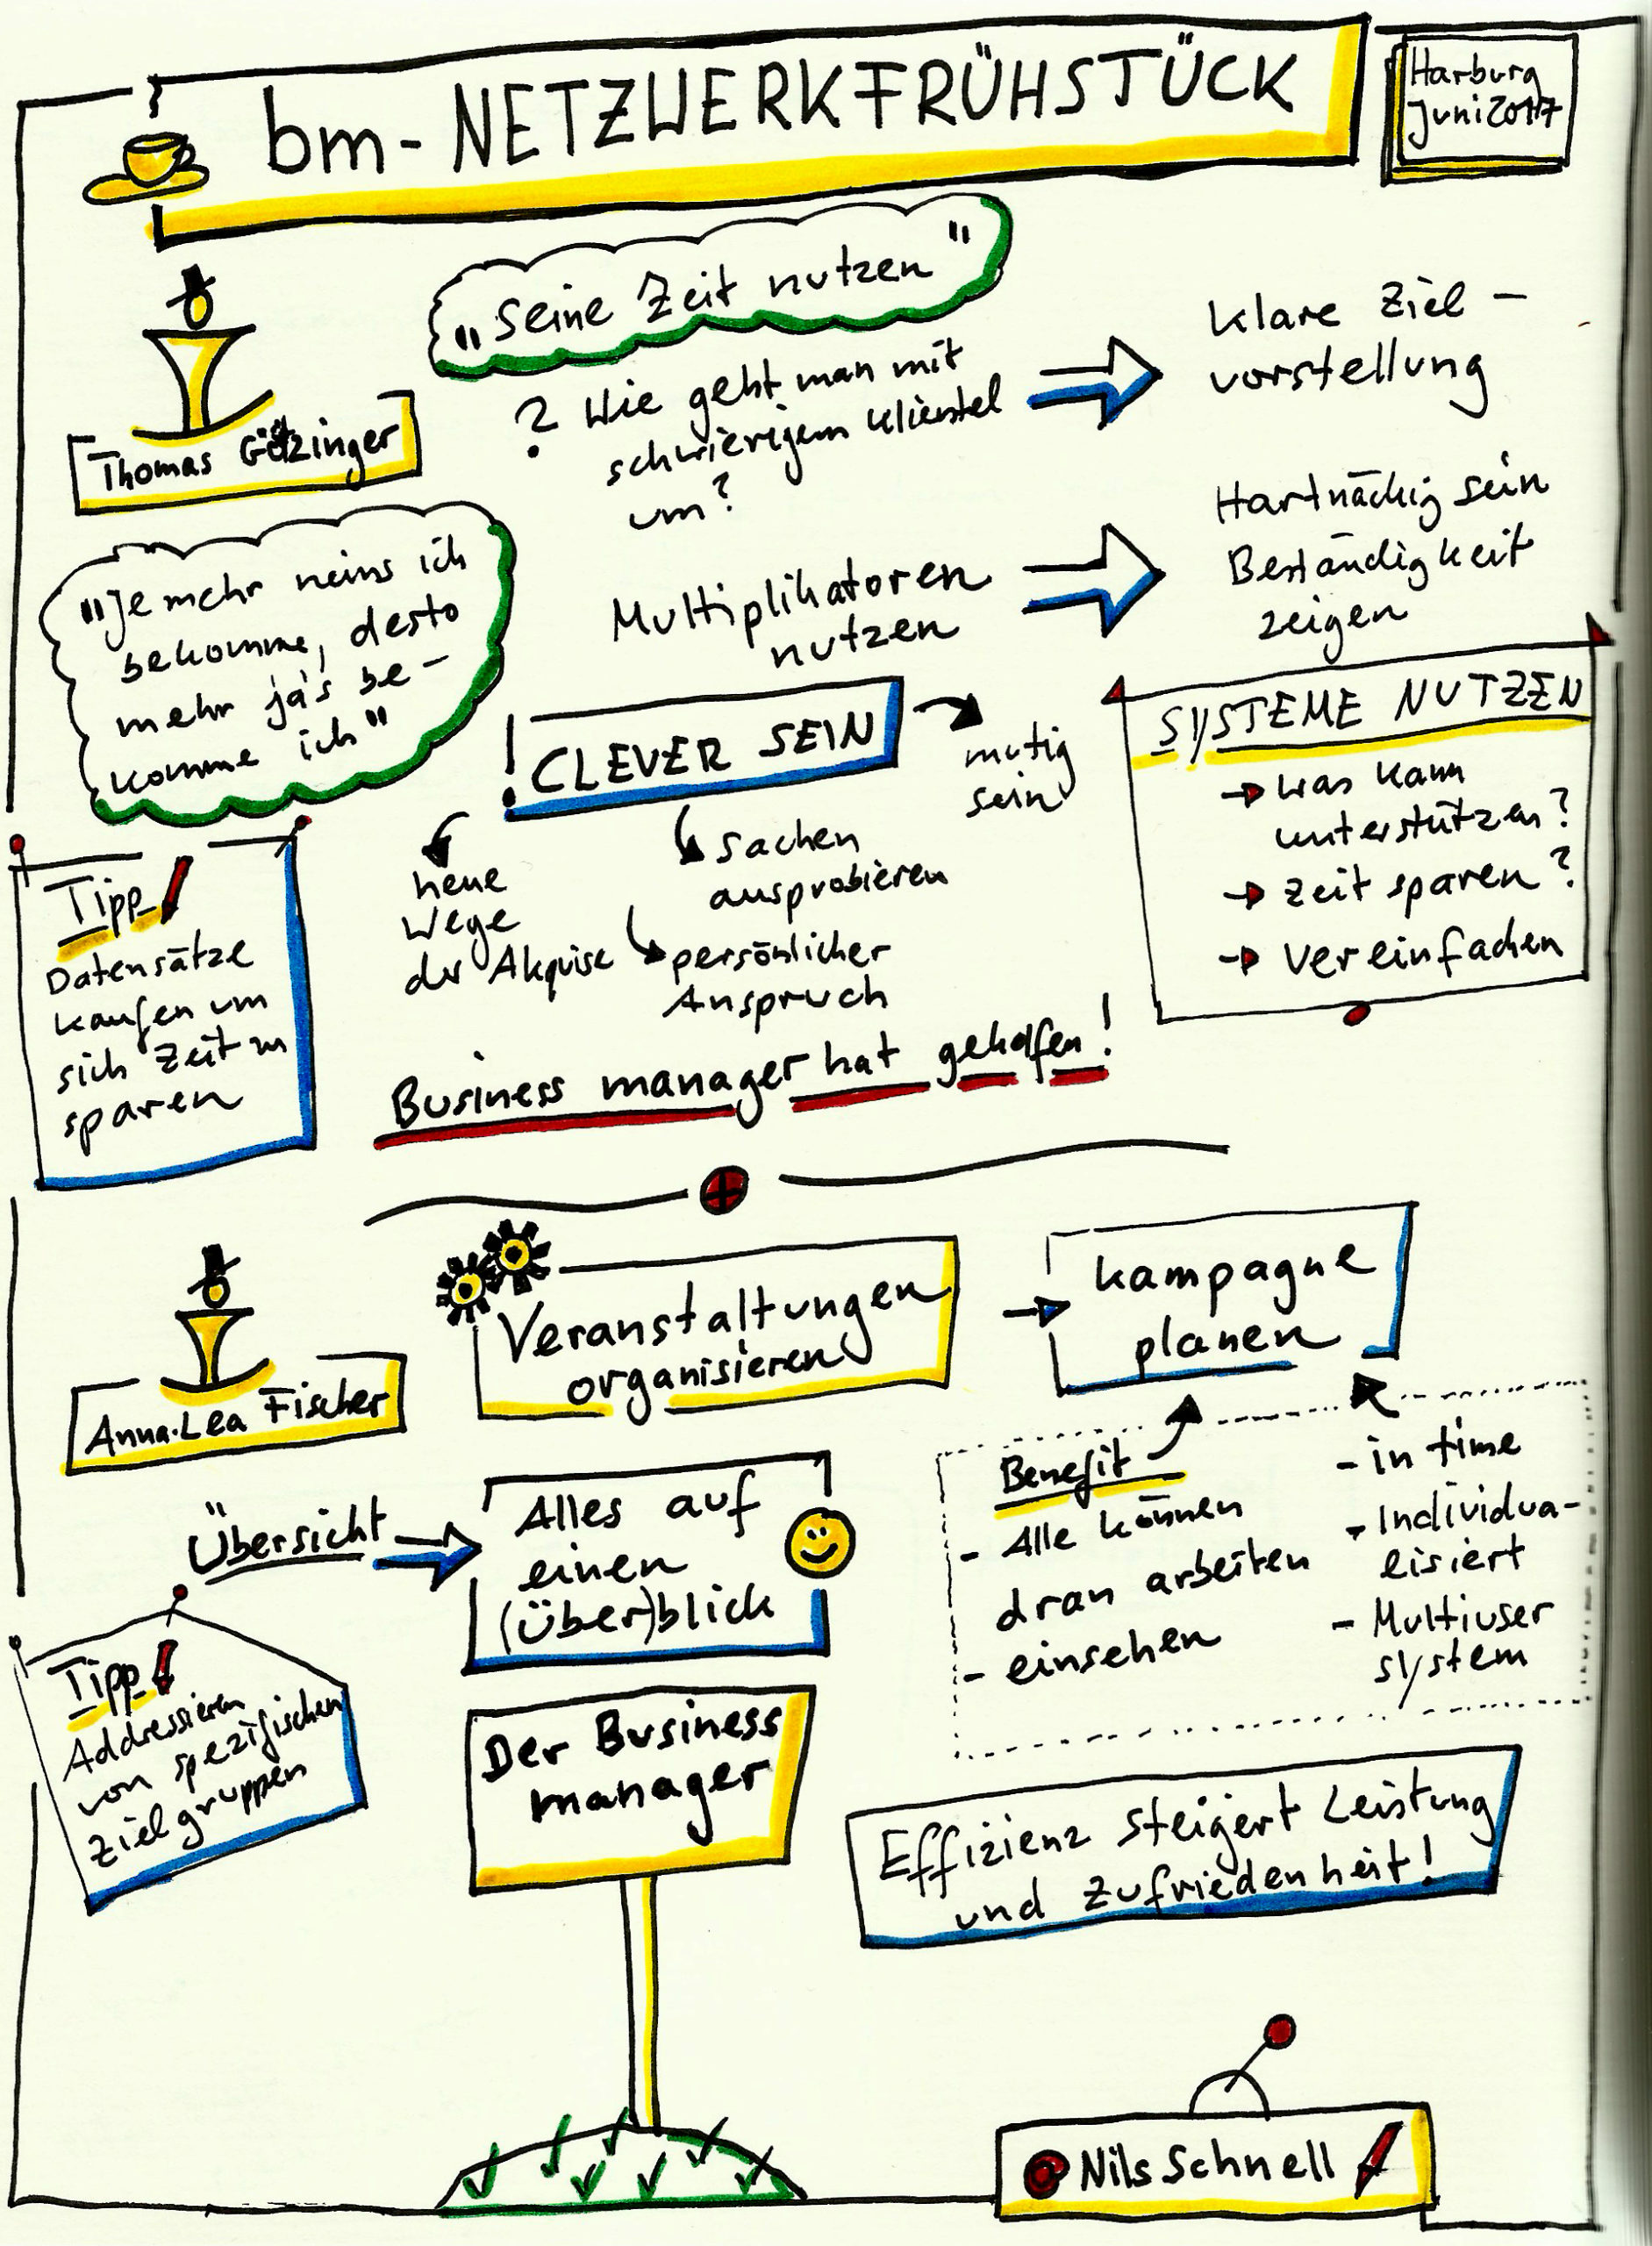 bm-NETZWERKFRÜHSTÜCK
Harburg
Juni 2017
Thomas Götzinger
"Seine Zeit nutzen"
? Wie geht man mit
schwierigem Klientel
um?
Klare Ziel-
vorstellung
Multiplikatoren
nutzen
Hartnäckig sein
Beständigkeit
zeigen
"Je mehr neins ich
bekomme, desto
mehr ja's be-
komme ich"
! CLEVER SEIN
mutig
sein
neue
Wege
der Akquise
Sachen
ausprobieren
persönlicher
Anspruch
SYSTEME NUTZEN
was kann
unterstützen?
Zeit sparen?
Vereinfachen
Tipp!
Datensätze
kaufen um
sich Zeit zu
sparen
Business manager hat geholfen!
Anna-Lea Fischer
Veranstaltungen
organisieren
Kampagne
planen
Benefit
- Alle können
dran arbeiten
- einsehen
- in time
- Individua-
lisiert
- Multiuser
system
Übersicht
Alles auf
einen
(Über)blick
Tipp!
Addressieren
von spezifischen
Zielgruppen
Der Business
manager
Effizienz steigert Leistung
und Zufriedenheit!
Nils Schnell